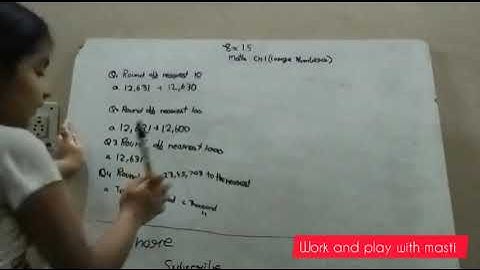 Ex 1.5
Math Ch 1 (Large Numbers)
Q1 Round off nearest 10
a. 12,631 → 12,630
Q2 Round off nearest 100
a. 12,631 → 12,600
Q3 Round off nearest 1000
a. 12,631
Q4 Round to the nearest
a. Thousand
Share
Subscribe
Work and play with masti